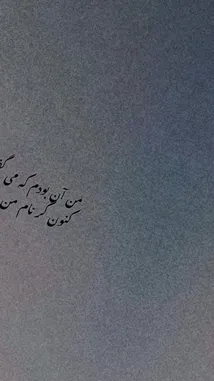 من آن بودم که می
کنون گر نام من